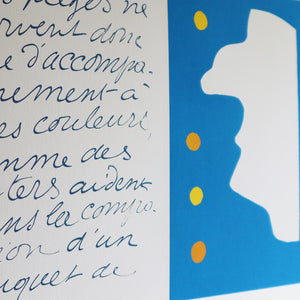 pages ne
rvent donc
e d'accompa-
nement à
es couleurs,
omme des
ters aident
ans la compo-
ion d'un
uquet de